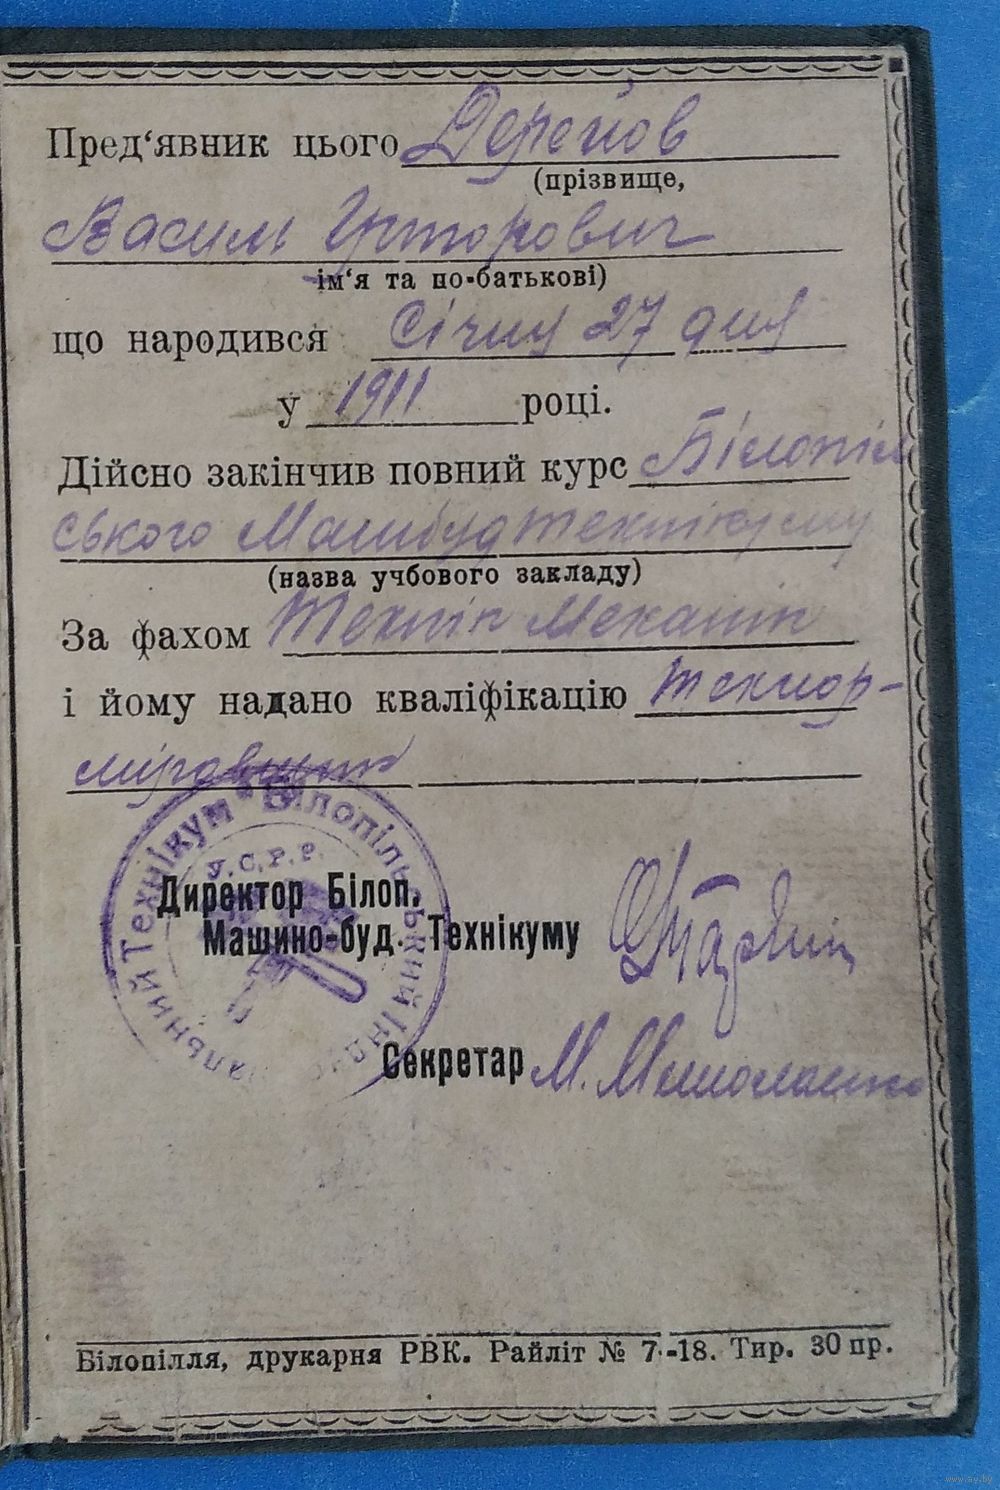 Пред‘явник цього Дерейов
(прізвище,
Василь Григорович
ім‘я та по-батькові)
що народився Січня 27 дня
у 1911 році.
Дійсно закінчив повний курс Білопіль
ського Машбудтехнікуму
(назва учбового закладу)
За фахом Технік Механік
і йому надано кваліфікацію технор-
міровщик
Індустріальний Технікум Білопільський
У.С.Р.Р.
Директор Білоп.
Машино-буд. Технікуму
Секретар М.
Білопілля, друкарня РВК. Райліт № 7-18. Тир. 30 пр.
www.ay.by